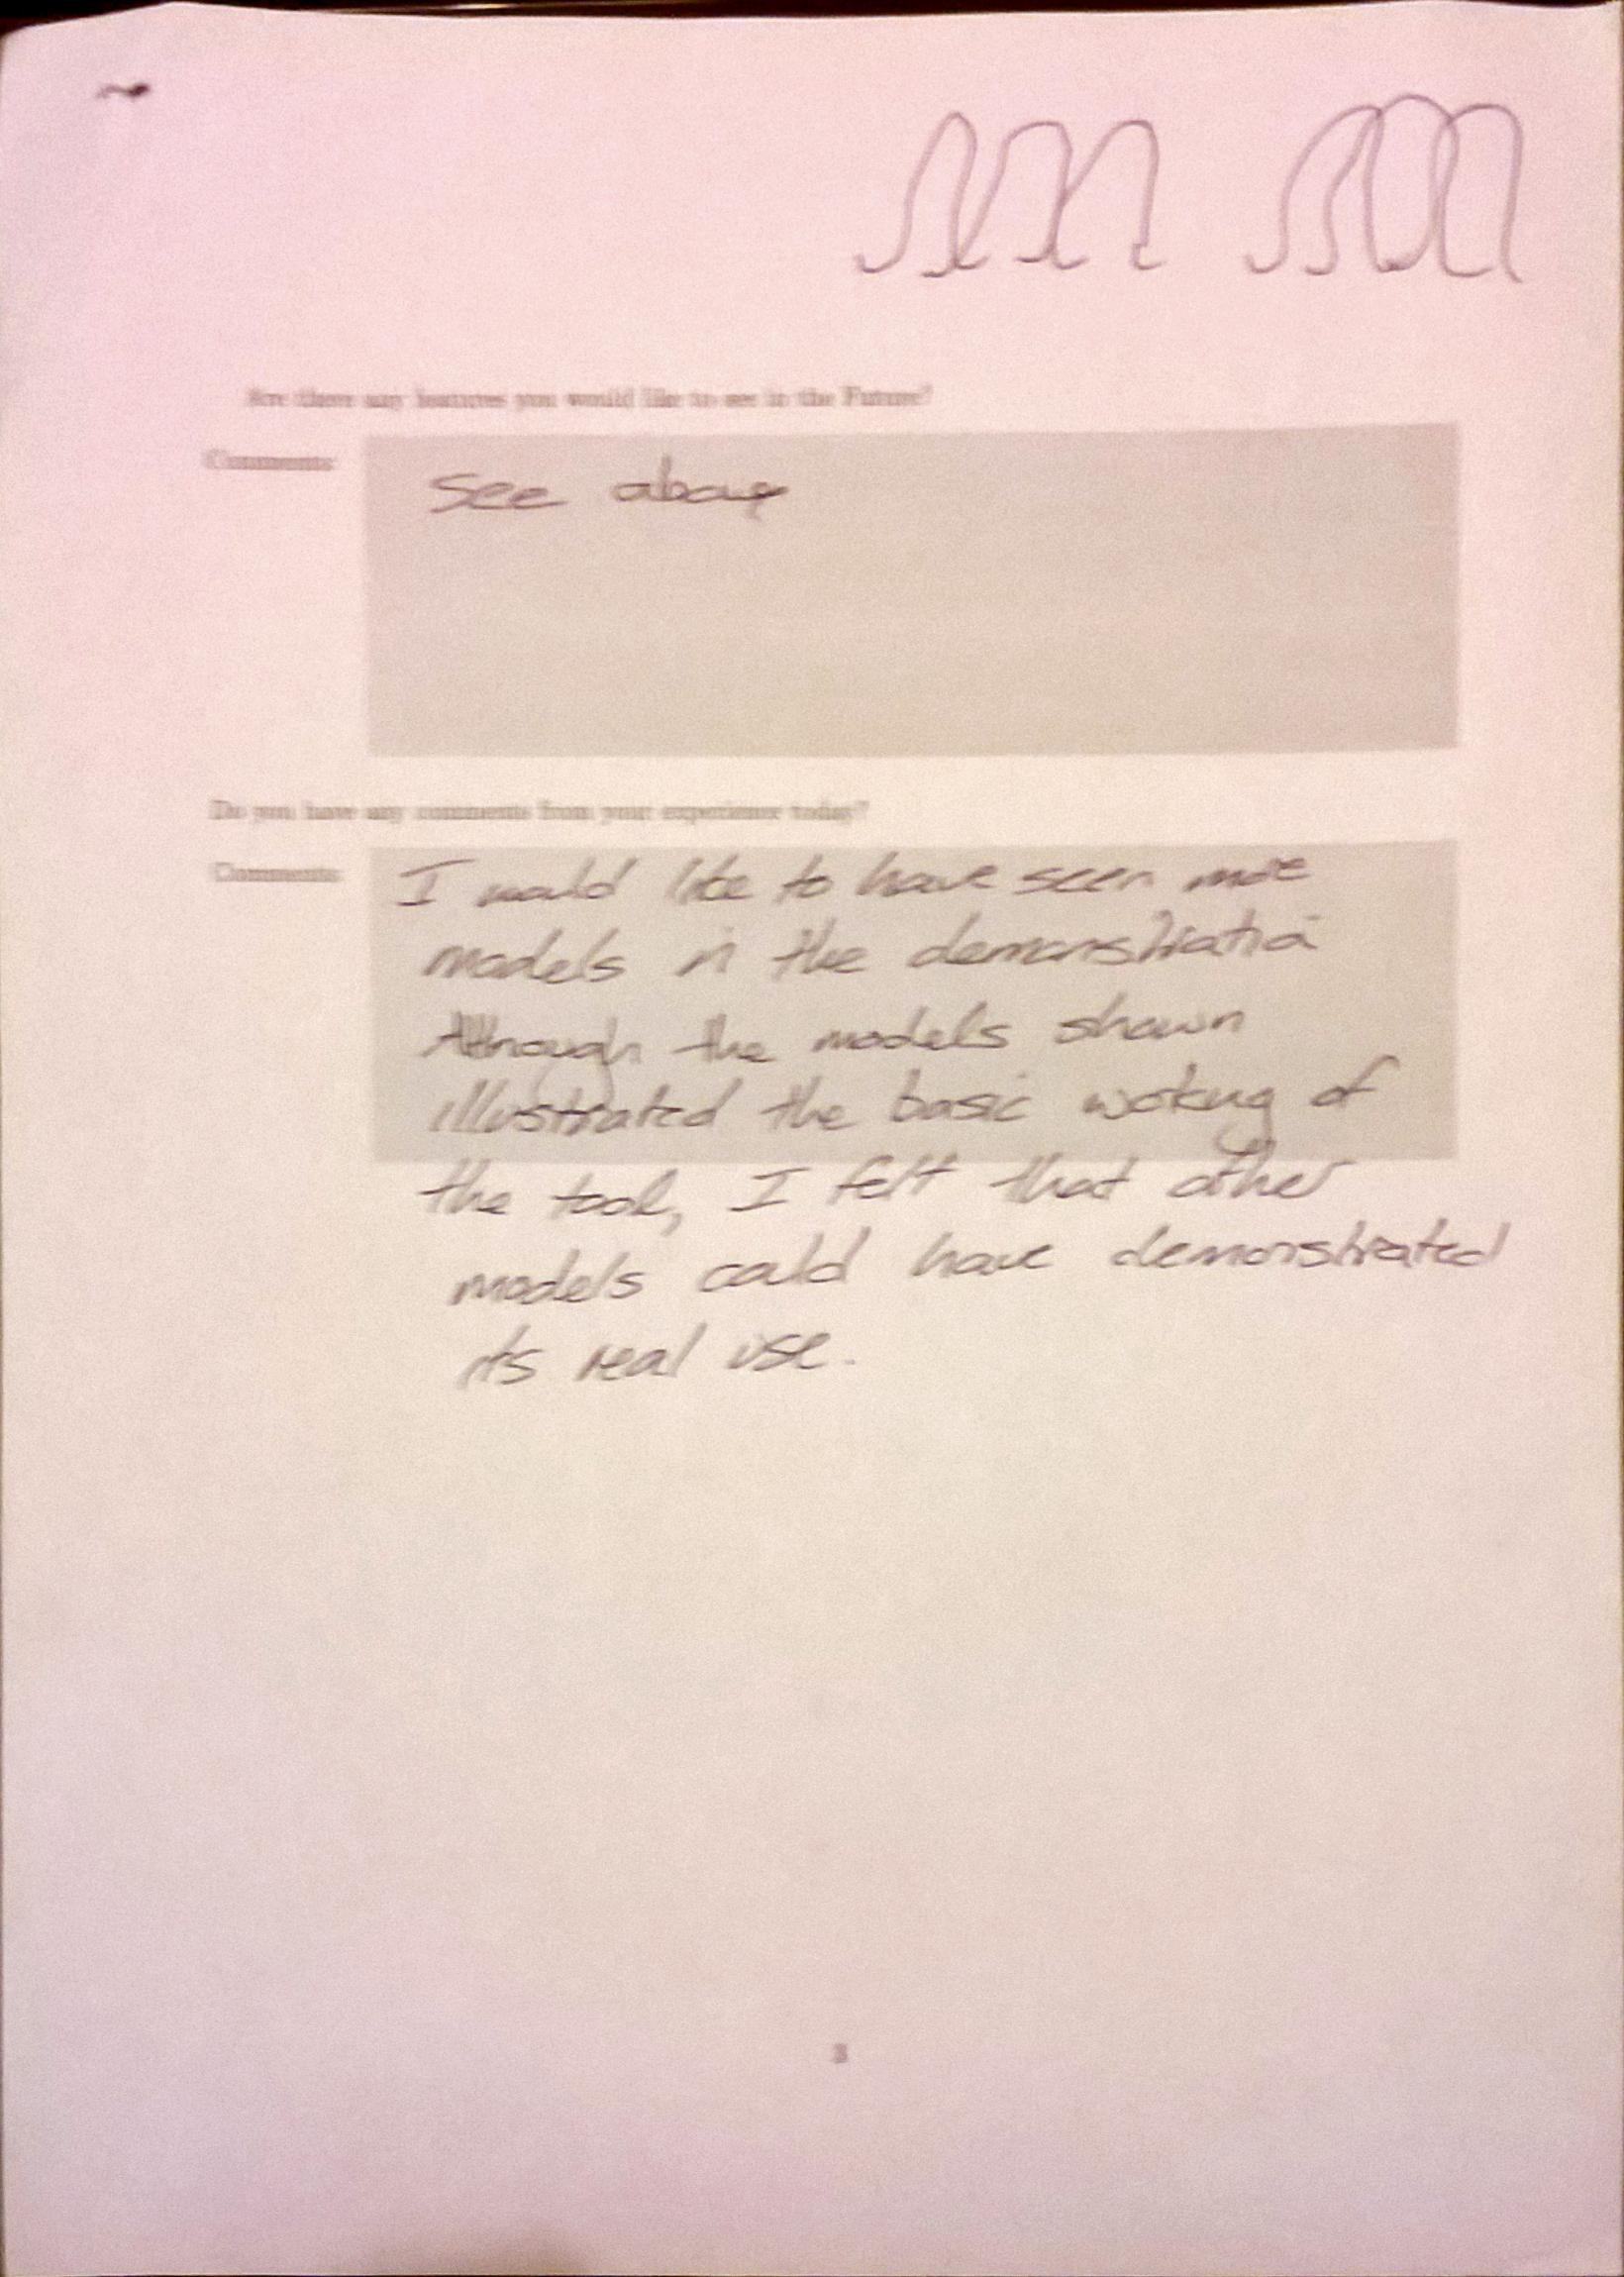 Are there any features you would like to see in the Future?
Comments:
see above
Do you have any comments from your experience today?
Comments:
I would like to have seen more
models in the demonstration
Although the models shown
illustrated the basic working of
the tool, I felt that other
models could have demonstrated
its real use.
3